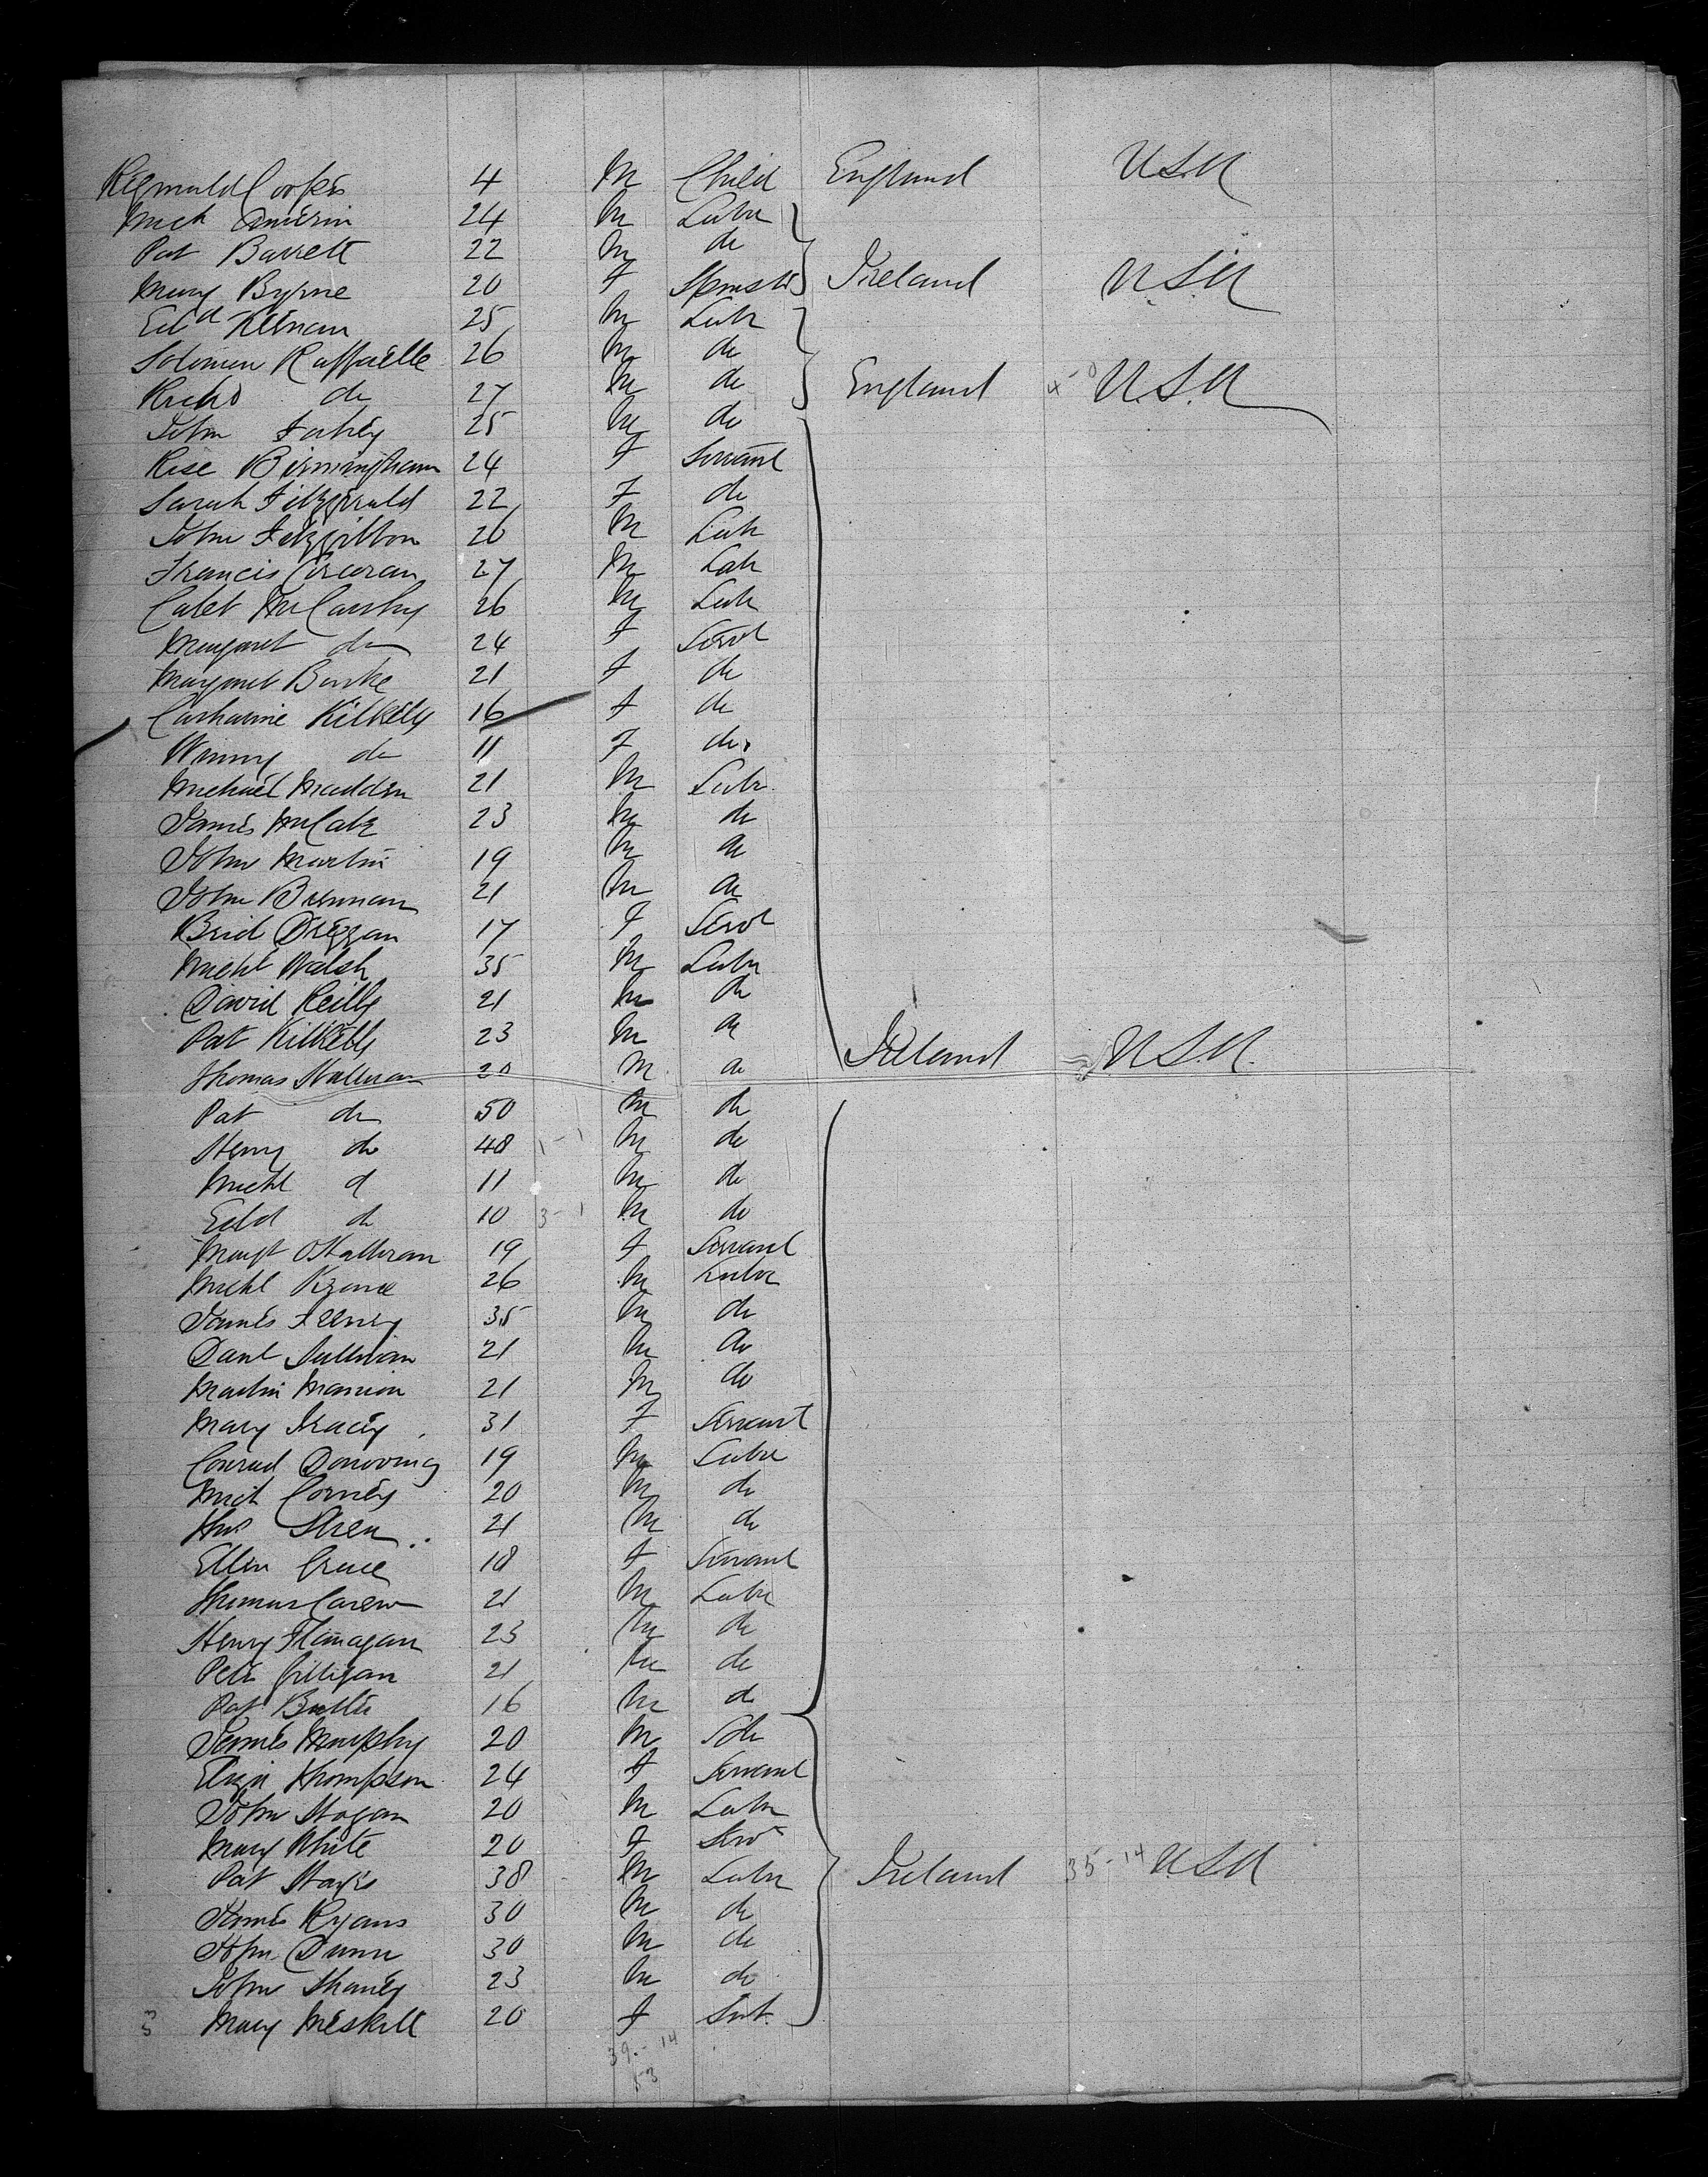 Reginald Cooper 4 M Child England U.S.A
Mich 24 M Labr
Pat Barrett 22 M do
Mary Byrne 20 F Spinster Ireland U.S.A
Edd Keenan 25 M Labr
Solomon Raffaelle 26 M do
Richd do 27 M do England 4-0 U.S.A
John Fahey 25 M do
Rose Birmingham 24 F Servant
Sarah Fitzgerald 22 F do
John Fitzgibbon 26 M Labr
Francis Corcoran 27 M Labr
Calet McCarthy 26 M Labr
Margaret do 24 F Servt
Margaret Burke 21 F do
Catharine Kilkelly 16 F do
Winny do 11 F do
Michael Madden 21 M Labr
James McCabe 23 M do
John Martin 19 M do
John Brennan 21 M do
Brid 17 F Servt
Michl Walsh 35 M Labr
David Reilly 21 M do
Pat Kilkelly 23 M do Ireland U.S.A.
Thomas Halleran 20 M do
Pat do 50 M do
Henry do 48 1-1 M do
Michl d 11 M do
Edd do 10 3-1 M do
Margt OHalleran 19 F Servant
Michl Keane 26 M Labr
James Feeney 35 M do
Danl Sullivan 21 M do
Martin Mannion 21 M do
Mary Tracey 31 F Servant
Conrad 19 M Labr
Mich 20 M do
Thos Shea 21 M do
Ellen 18 F Servant
Thomas Carew 21 M Labr
Henry Flanagan 23 M do
Peter Gilligan 21 M do
Pat Butler 16 M do
James Murphy 20 M do
Eliza Thompson 24 F Servant
John Hogan 20 M Labr
Mary White 20 F Servt
Pat Hayes 38 M Labr Ireland 35-14 U.S.A
James Ryans 30 M do
John Dunn 30 M do
John 23 M do
Mary Meskill 20 F Svt.
39-14
53